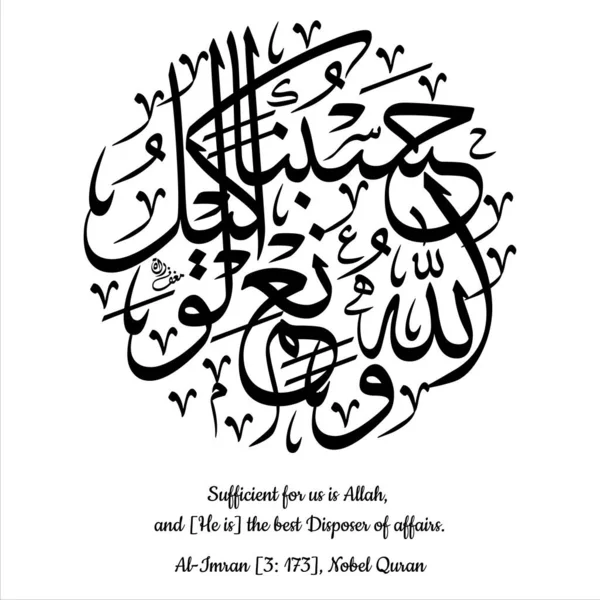 حَسْبُنَا اللهُ وَنِعْمَ الْوَكِيلُ
Sufficient for us is Allah,
and [He is] the best Disposer of affairs.
Al-Imran [3: 173], Nobel Quran